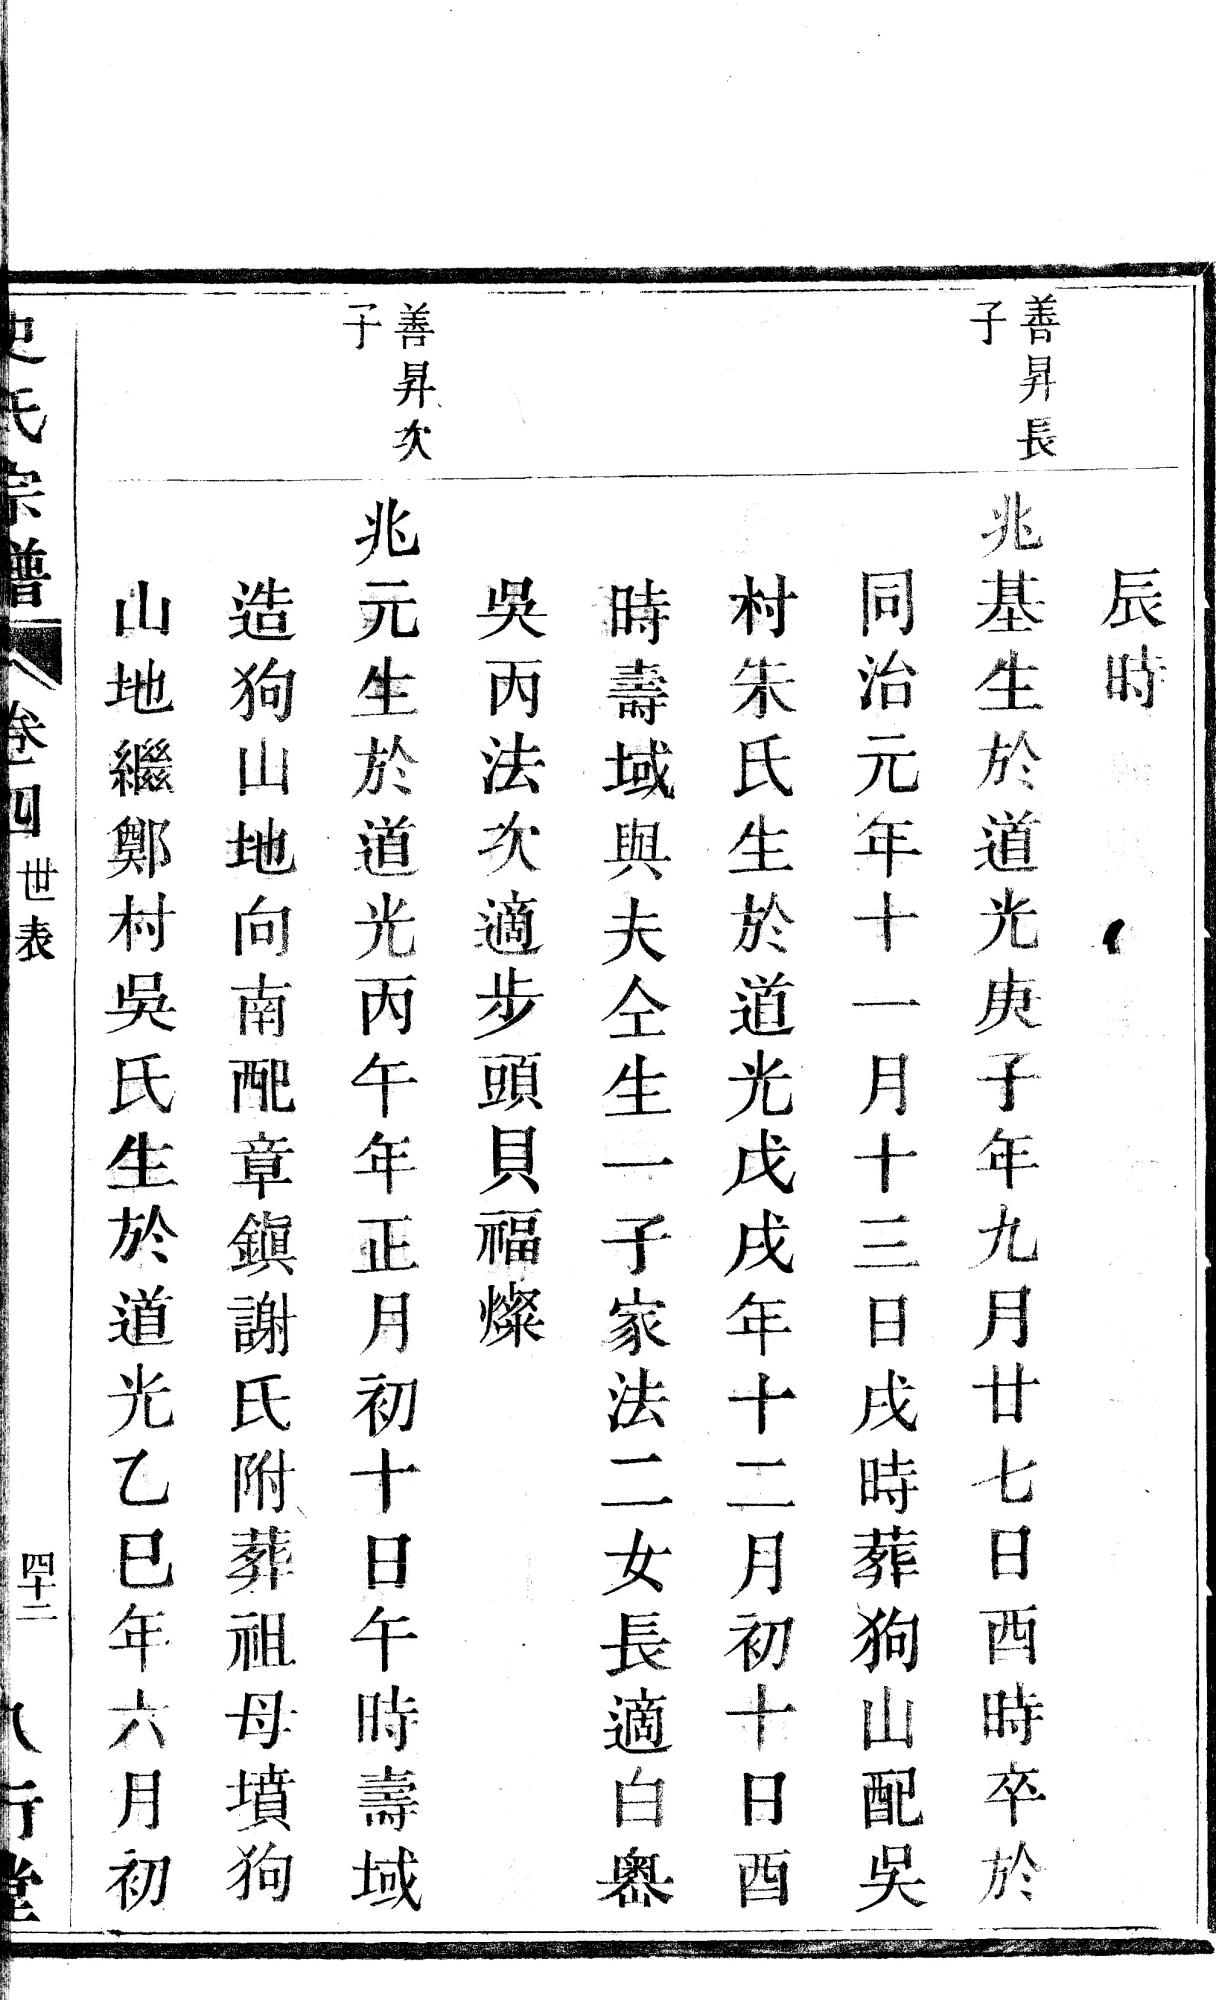 辰時
善昇長
子
兆基生於道光庚子年九月廿七日酉時卒於
同治元年十一月十三日戌時葬狗山配吳
村朱氏生於道光戊戌年十二月初十日酉
時壽域與夫仝生一子家法二女長適白嶴
吳丙法次適步頭貝福燦
善昇次
子
兆元生於道光丙午年正月初十日午時壽域
造狗山地向南配章鎭謝氏附葬祖母墳狗
山地繼鄭村吳氏生於道光乙巳年六月初
史氏宗譜
卷四
世表
四十二
八行堂